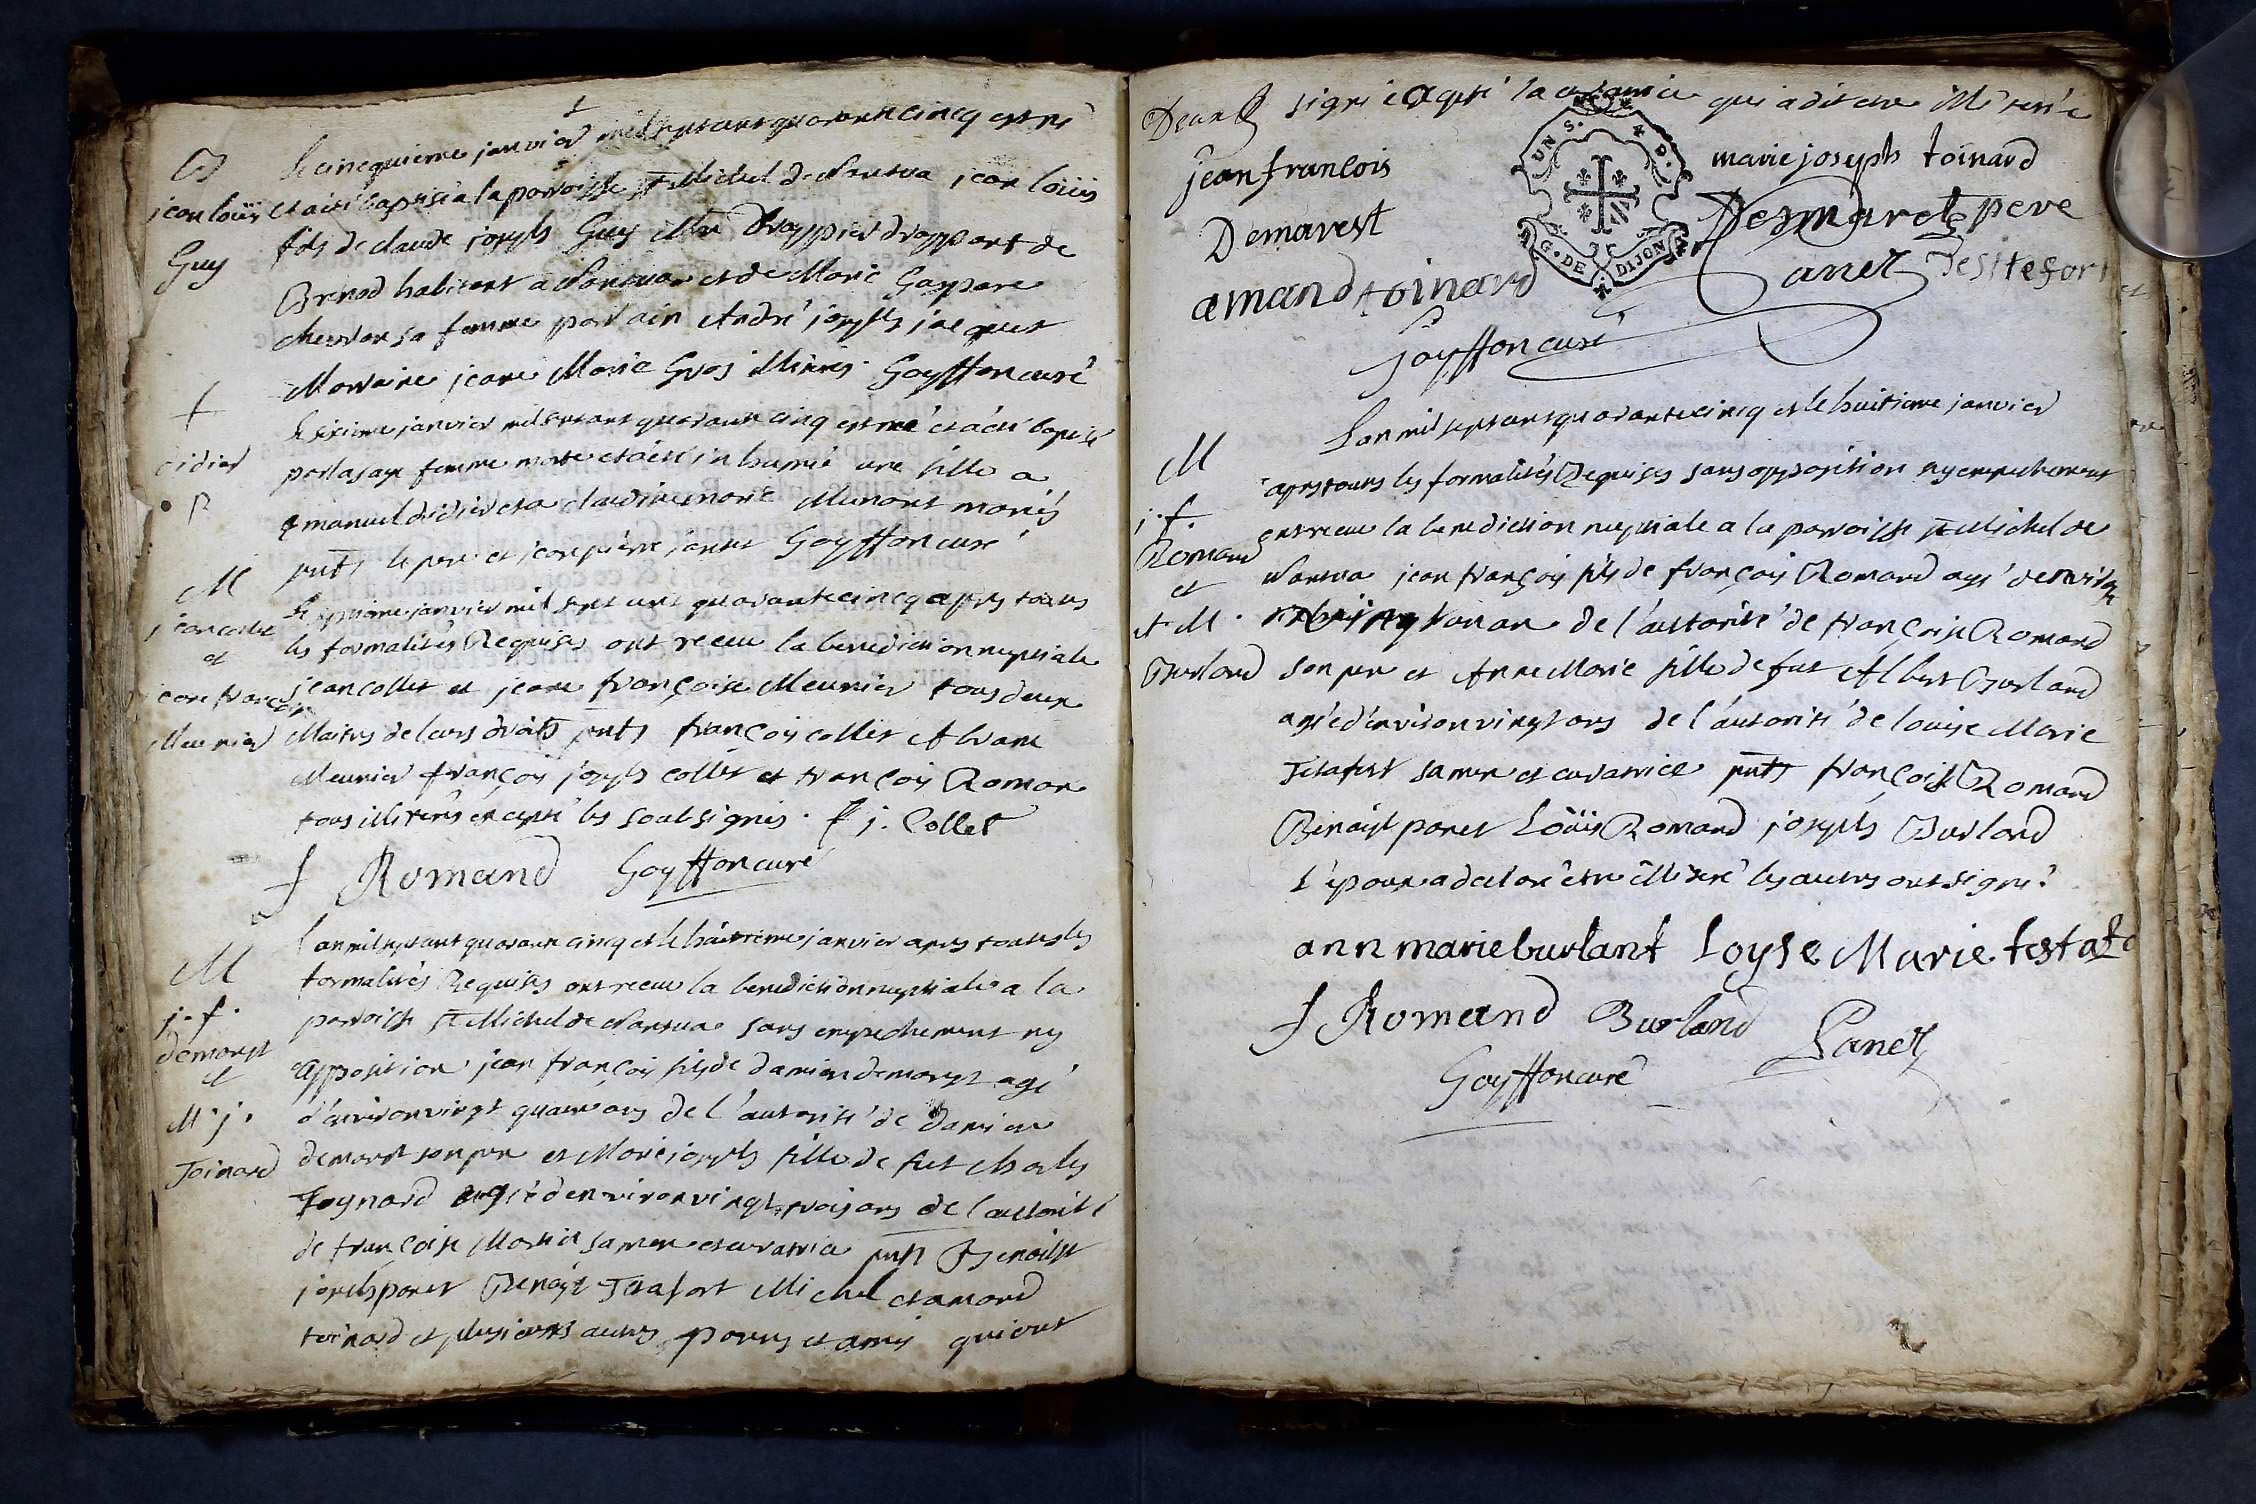 B
jean loüis
Guy
Le cinquieme janvier mil sept cent quarante cinq est né
et a été baptisé a la parroisse st Michel de Nantua jean loüis
fils de claude joseph Guy Mtre Drappier drappant de
Brenod habitant a Nantua et de Marie Gaspare
sa femme parrain André joseph jacquet
Marraine jeane Marie Gros illitérés. Goyffon curé
†
didier
Le sixieme janvier mil sept cent quarante cinq est né et a été baptisé
par la sage femme morte et a été inhumée une fille a
emanuel didier et a claudine marie mariés
pnts le pere et jean pierre Goyffon curé
M
jean collet
et
jeane françoise
Meunier
Le septieme janvier mil sept cent quarante cinq apres toutes
les formalités Requises ont receu la benediction nuptiale
jean collet et jeane françoise Meunier tous deux
Maitres de leurs droits pnts françois collet
Meunier françois joseph collet et françois Roman
tous illitérés excepté les soubsignés. f j. Collet
f Romand Goyffon curé
M
j. f.
demarest
et
M. j.
Toinard
L'an mil sept cent quarante cinq et le huitieme janvier apres toutes les
formalités Requises ont receu la benediction nuptiale a la
parroisse st Michel de Nantua sans empechement ny
opposition jean françois fils de damien demarest agé
d'environ vingt quatre ans de l'autorité de damien
demarest son pere et Marie joseph fille de fut charles
Toynard agée d'environ vingt trois ans de l'authorité
de françoise Martin sa mere et curatrice pnts Benoist
joseph panet Benoist Testafort Michel et amand
toinard et plusieurs autres parens et amis qui ont
signé excepté la curatrice qui a dit etre illiterée
jean francois
Demarest
marie joseph toinard
Desmaretz pere
amand toinard
Panet Testefort
Goyffon curé
UN S. D. G. DE DIJON
M
j. f.
Romand
et
A M.
Burland
L'an mil sept cent quarante cinq et le huitieme janvier
apres toutes les formalités Requises sans opposition ny empechement
ont receu la benediction nuptiale a la parroisse st Michel de
Nantua jean françois fils de françois Romand agé d'environ
de l'autorité de françois Romand
son pere et Anne Marie fille de fut Albert Burland
agée d'environ vingt ans de l'autorité de louise Marie
Testafort sa mere et curatrice pnts françois Romand
Benoist panet Loüis Romand joseph Burland
L'epoux a declaré etre illiteré les autres ont signé.
ann marie burlant Loyse Marie
f Romand Burland Panet
Goyffon curé